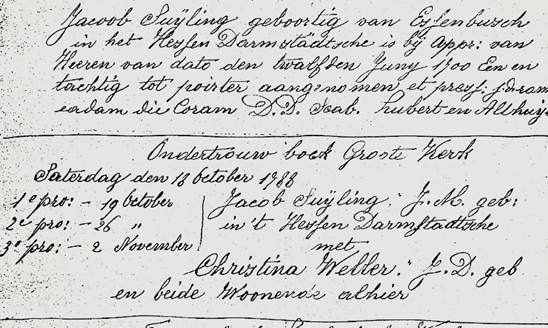 Jacob Suÿling geboortig van Essenbusch
in het Hessen Darmstädtsche is bÿ appr: van
Heeren van dato den twalfden Juny 1700 Een en
tachtig tot poirter aangenomen et press: juram
eadam die Coram D.D. Isab. hubert en Althuÿs
Ondertrouw boek Groote Kerk
Saterdag den 18 October 1788
1e pro: - 19 October
2e pro: - 26 "
3e pro: - 2 November
Jacob Suÿling. J.M. geb:
in't Hessen Darmstadtsche
met
Christina Weller. J.D. geb
en beide Woonende alhier